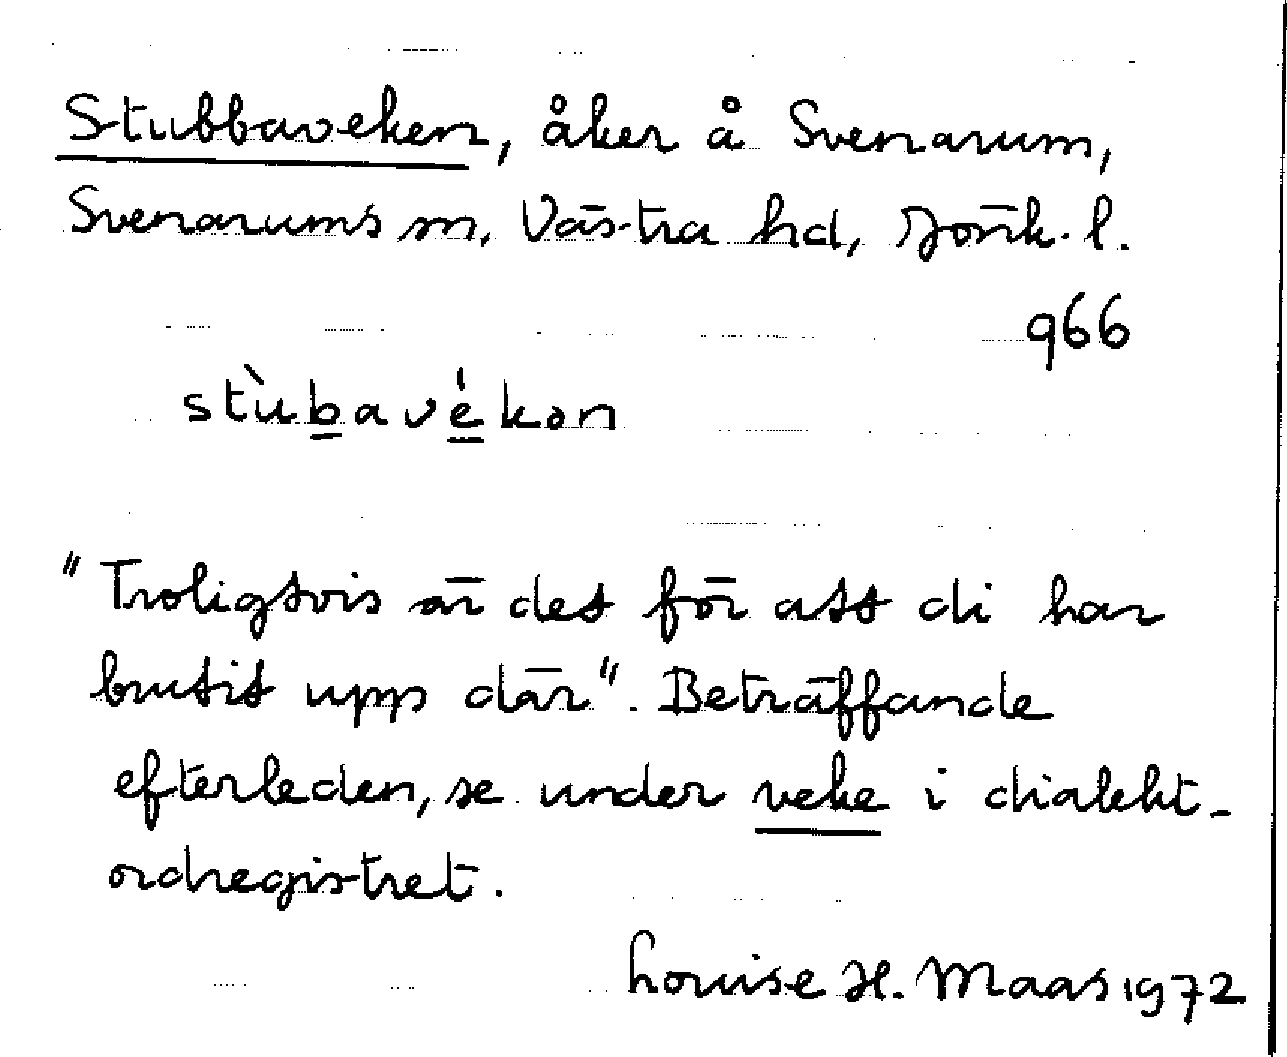 Stubbaveken, åker å Svenarum,
Svenarums sn, Västra hd, Jönk. l.
966
stùbavékən
"Troligtvis är det för att di har
brutit upp där". Beträffande
efterleden, se under veke i dialekt-
ordregistret.
Louise H. Maas 1972